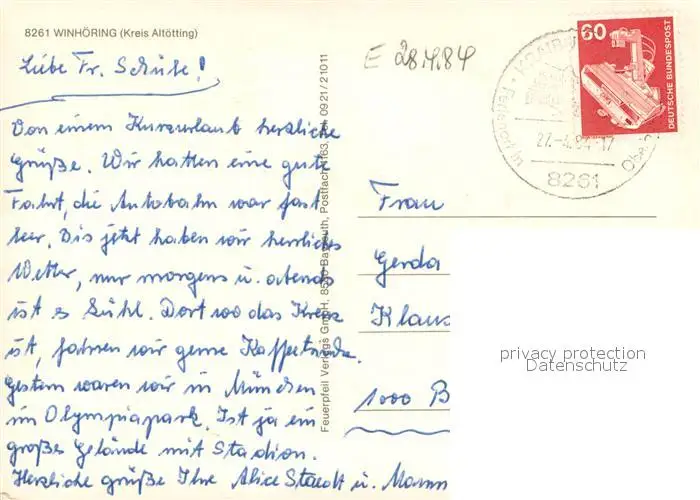 8261 WINHÖRING (Kreis Altötting)
Liebe Fr. Schulze!
Von einem Kurzurlaub herzliche
Grüße. Wir hatten eine gute
Fahrt, die Autobahn war fast
leer. Bis jetzt haben wir herrliches
Wetter, nur morgens u. abends
ist es kühl. Dort wo das Kreuz
ist, fahren wir gerne Kaffeetrinken.
Gestern waren wir in München
im Olympiapark. Ist ja ein
großes Gelände mit Stadion.
Herzliche Grüße Ihre Alice Staedt u. Mann
Feuerpfeil Verlags GmbH, 8580 Bayreuth, Postfach 1163, 0921/21011
E 28.4.84
60
DEUTSCHE BUNDESPOST
27.-4.84-17
8261
Frau
Gerda
Klaus
1000 B
privacy protection
Datenschutz